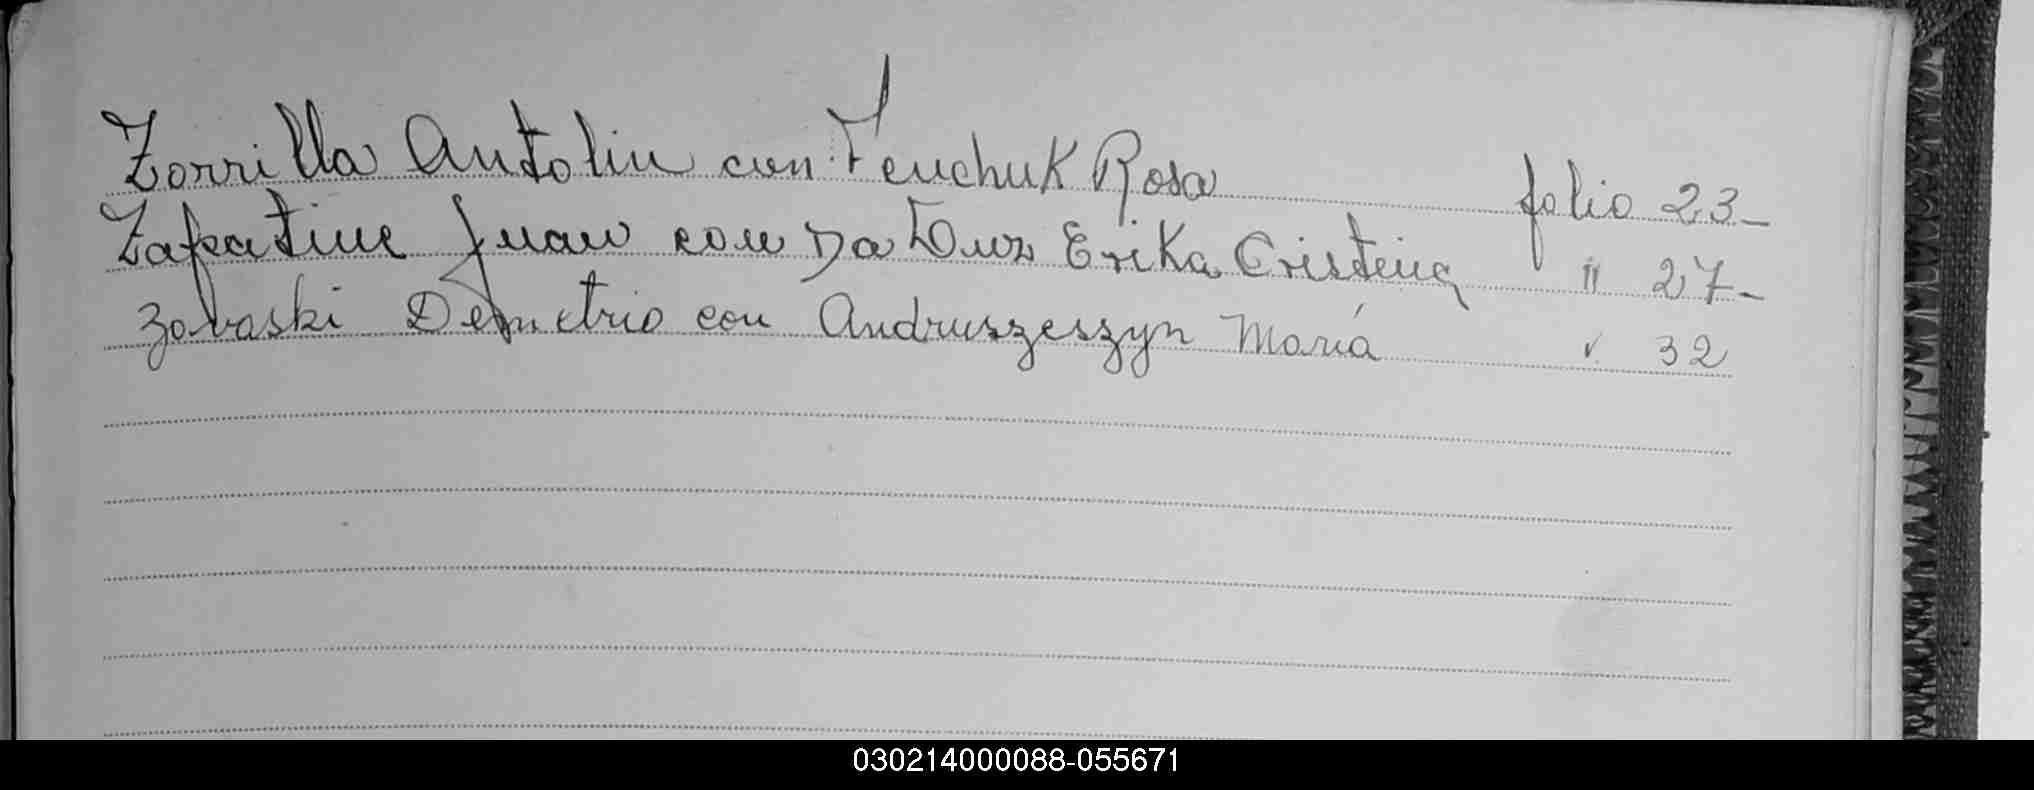 Zorrilla Antolin con Fenchuk Rosa folio 23-
Juan con Da Erika Cristina " 27-
Zovaski Demetrio con Andruszeszyn María " 32
030214000088-055671